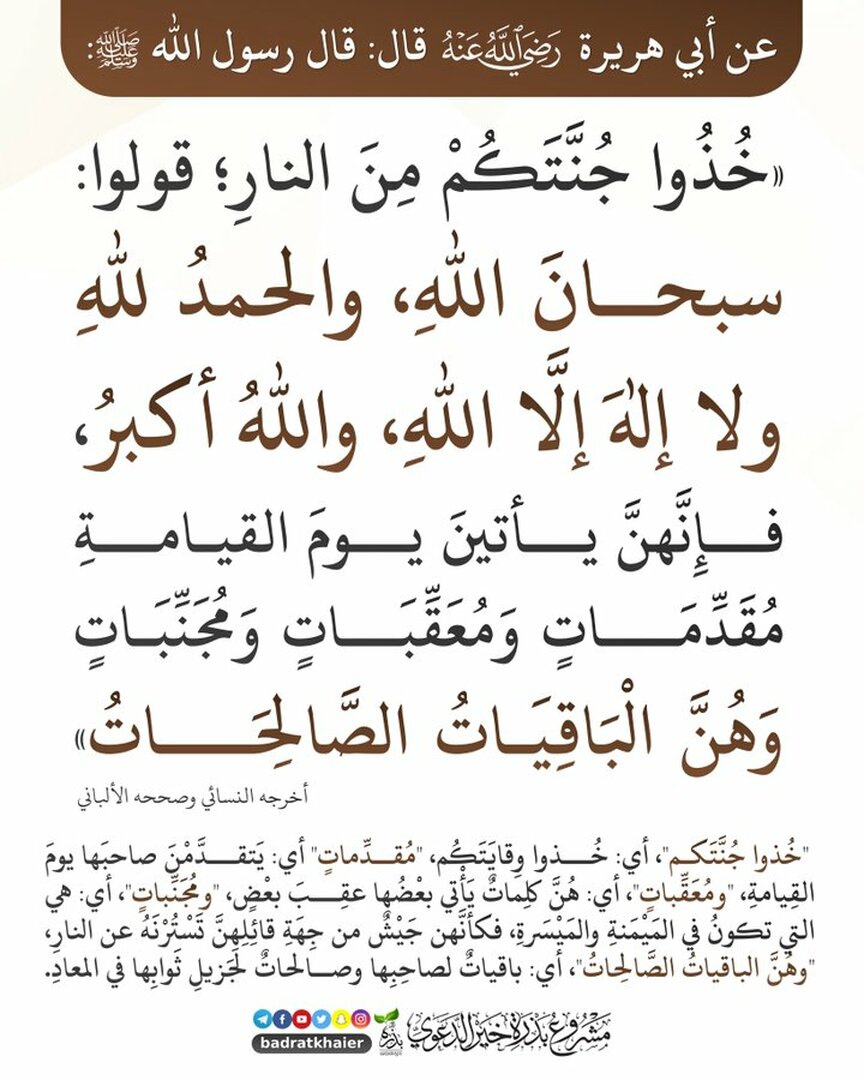 عن أبي هريرة رَضِيَ اللَّهُ عَنْهُ قال: قال رسول الله ﷺ:
«خُذُوا جُنَّتَكُمْ مِنَ النارِ؛ قولوا:
سبحانَ اللهِ، والحمدُ للهِ
ولا إلهَ إلَّا اللهِ، واللهُ أكبرُ،
فإِنَّهنَّ يأتينَ يومَ القيامةِ
مُقَدِّمَاتٍ وَمُعَقِّبَاتٍ وَمُجَنِّبَاتٍ
وَهُنَّ الْبَاقِيَاتُ الصَّالِحَاتُ»
أخرجه النسائي وصححه الألباني
"خُذوا جُنَّتَكم"، أي: خُذوا وِقايَتَكُم، "مُقدِّماتٍ" أي: يَتقدَّمْنَ صاحبَها يومَ
القِيامةِ، "ومُعَقِّباتٍ"، أي: هُنَّ كلِماتٌ يَأْتي بعْضُها عقِبَ بعْضٍ، "ومُجَنِّباتٍ"، أي: هي
التي تكونُ في المَيْمَنةِ والمَيْسَرةِ، فكأنَّهن جَيْشٌ من جِهَةِ قائِلِهنَّ تَسْتُرْنَهُ عن النارِ،
"وهُنَّ الباقياتُ الصَّالِحاتُ"، أي: باقياتٌ لصاحِبِها وصالحاتٌ لجَزيلِ ثَوابِها في المعادِ.
مشروع بذرة خير الدعوي
بذرة
badratkhaier